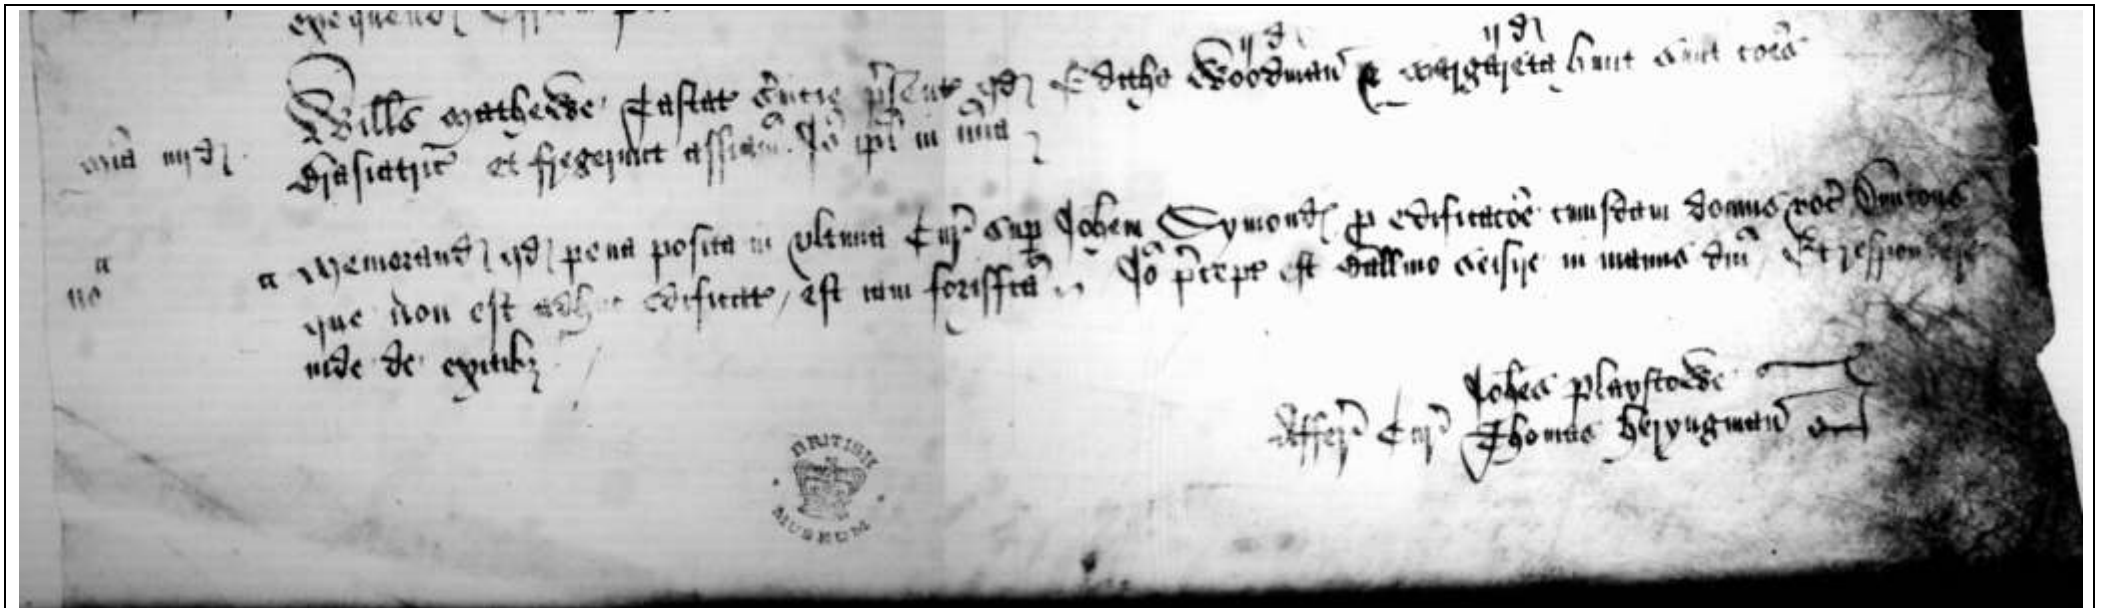 ijd ijd
Willms Mathewe Tastator cervicie present qd Editha Woodman & Margareta hunt sunt coes
mia iiijd Brasiatric et fregerunt assiam Io ipe in mia
a Memorand qd pena posita in ultima Cur sup Johem Symond p edificacoe cuiusdam domus voc
a
no que non est adhuc edificat / est iam forisfca Io precept est Ballivo seisire in manus dni Et respondere
inde de exitibz
Johes Playstowe
Affer Cur Thomas Heryngman
BRITISH
MUSEUM